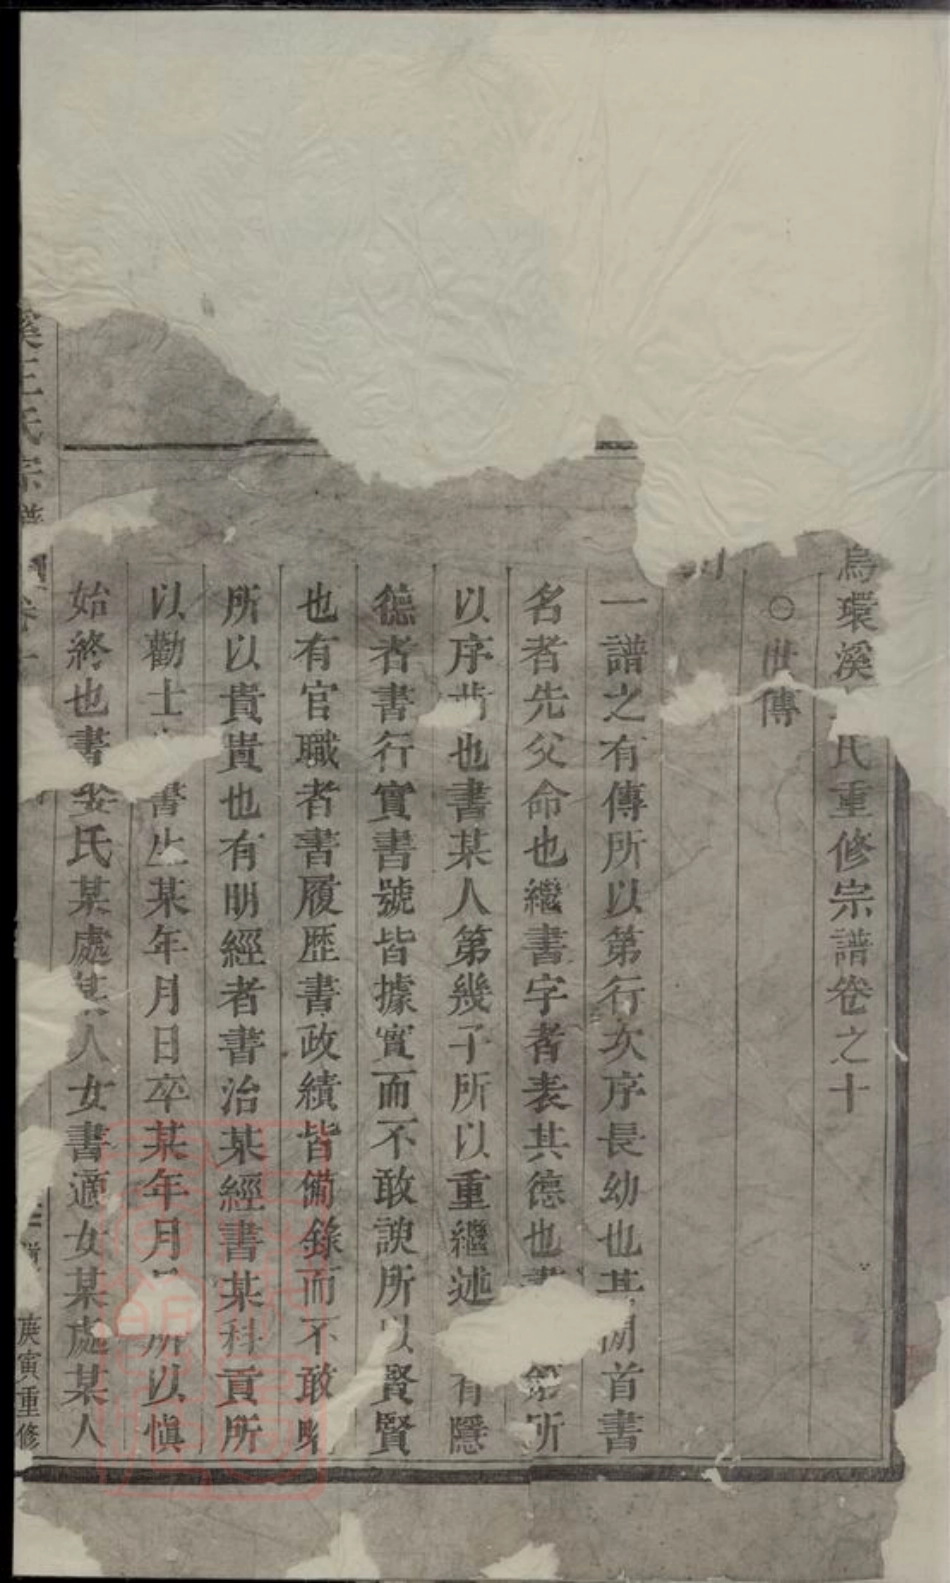 烏環溪氏重修宗譜卷之十
○世傳
一譜之有傳所以第行次序長幼也其開首書
名者先父命也繼書字者表其德也書所
以序也書某人第幾子所以重繼述有隱
德者書行實書號皆據實而不敢諛所以賢賢
也有官職者書履歴書政績皆備錄而不敢
所以貴貴也有明經者書治某經書某科貢所
以勸士書生某年月日卒某年月所以慎
始終也書娶氏某處某人女書適女某處某人
溪王氏宗譜
卷十
庚寅重修